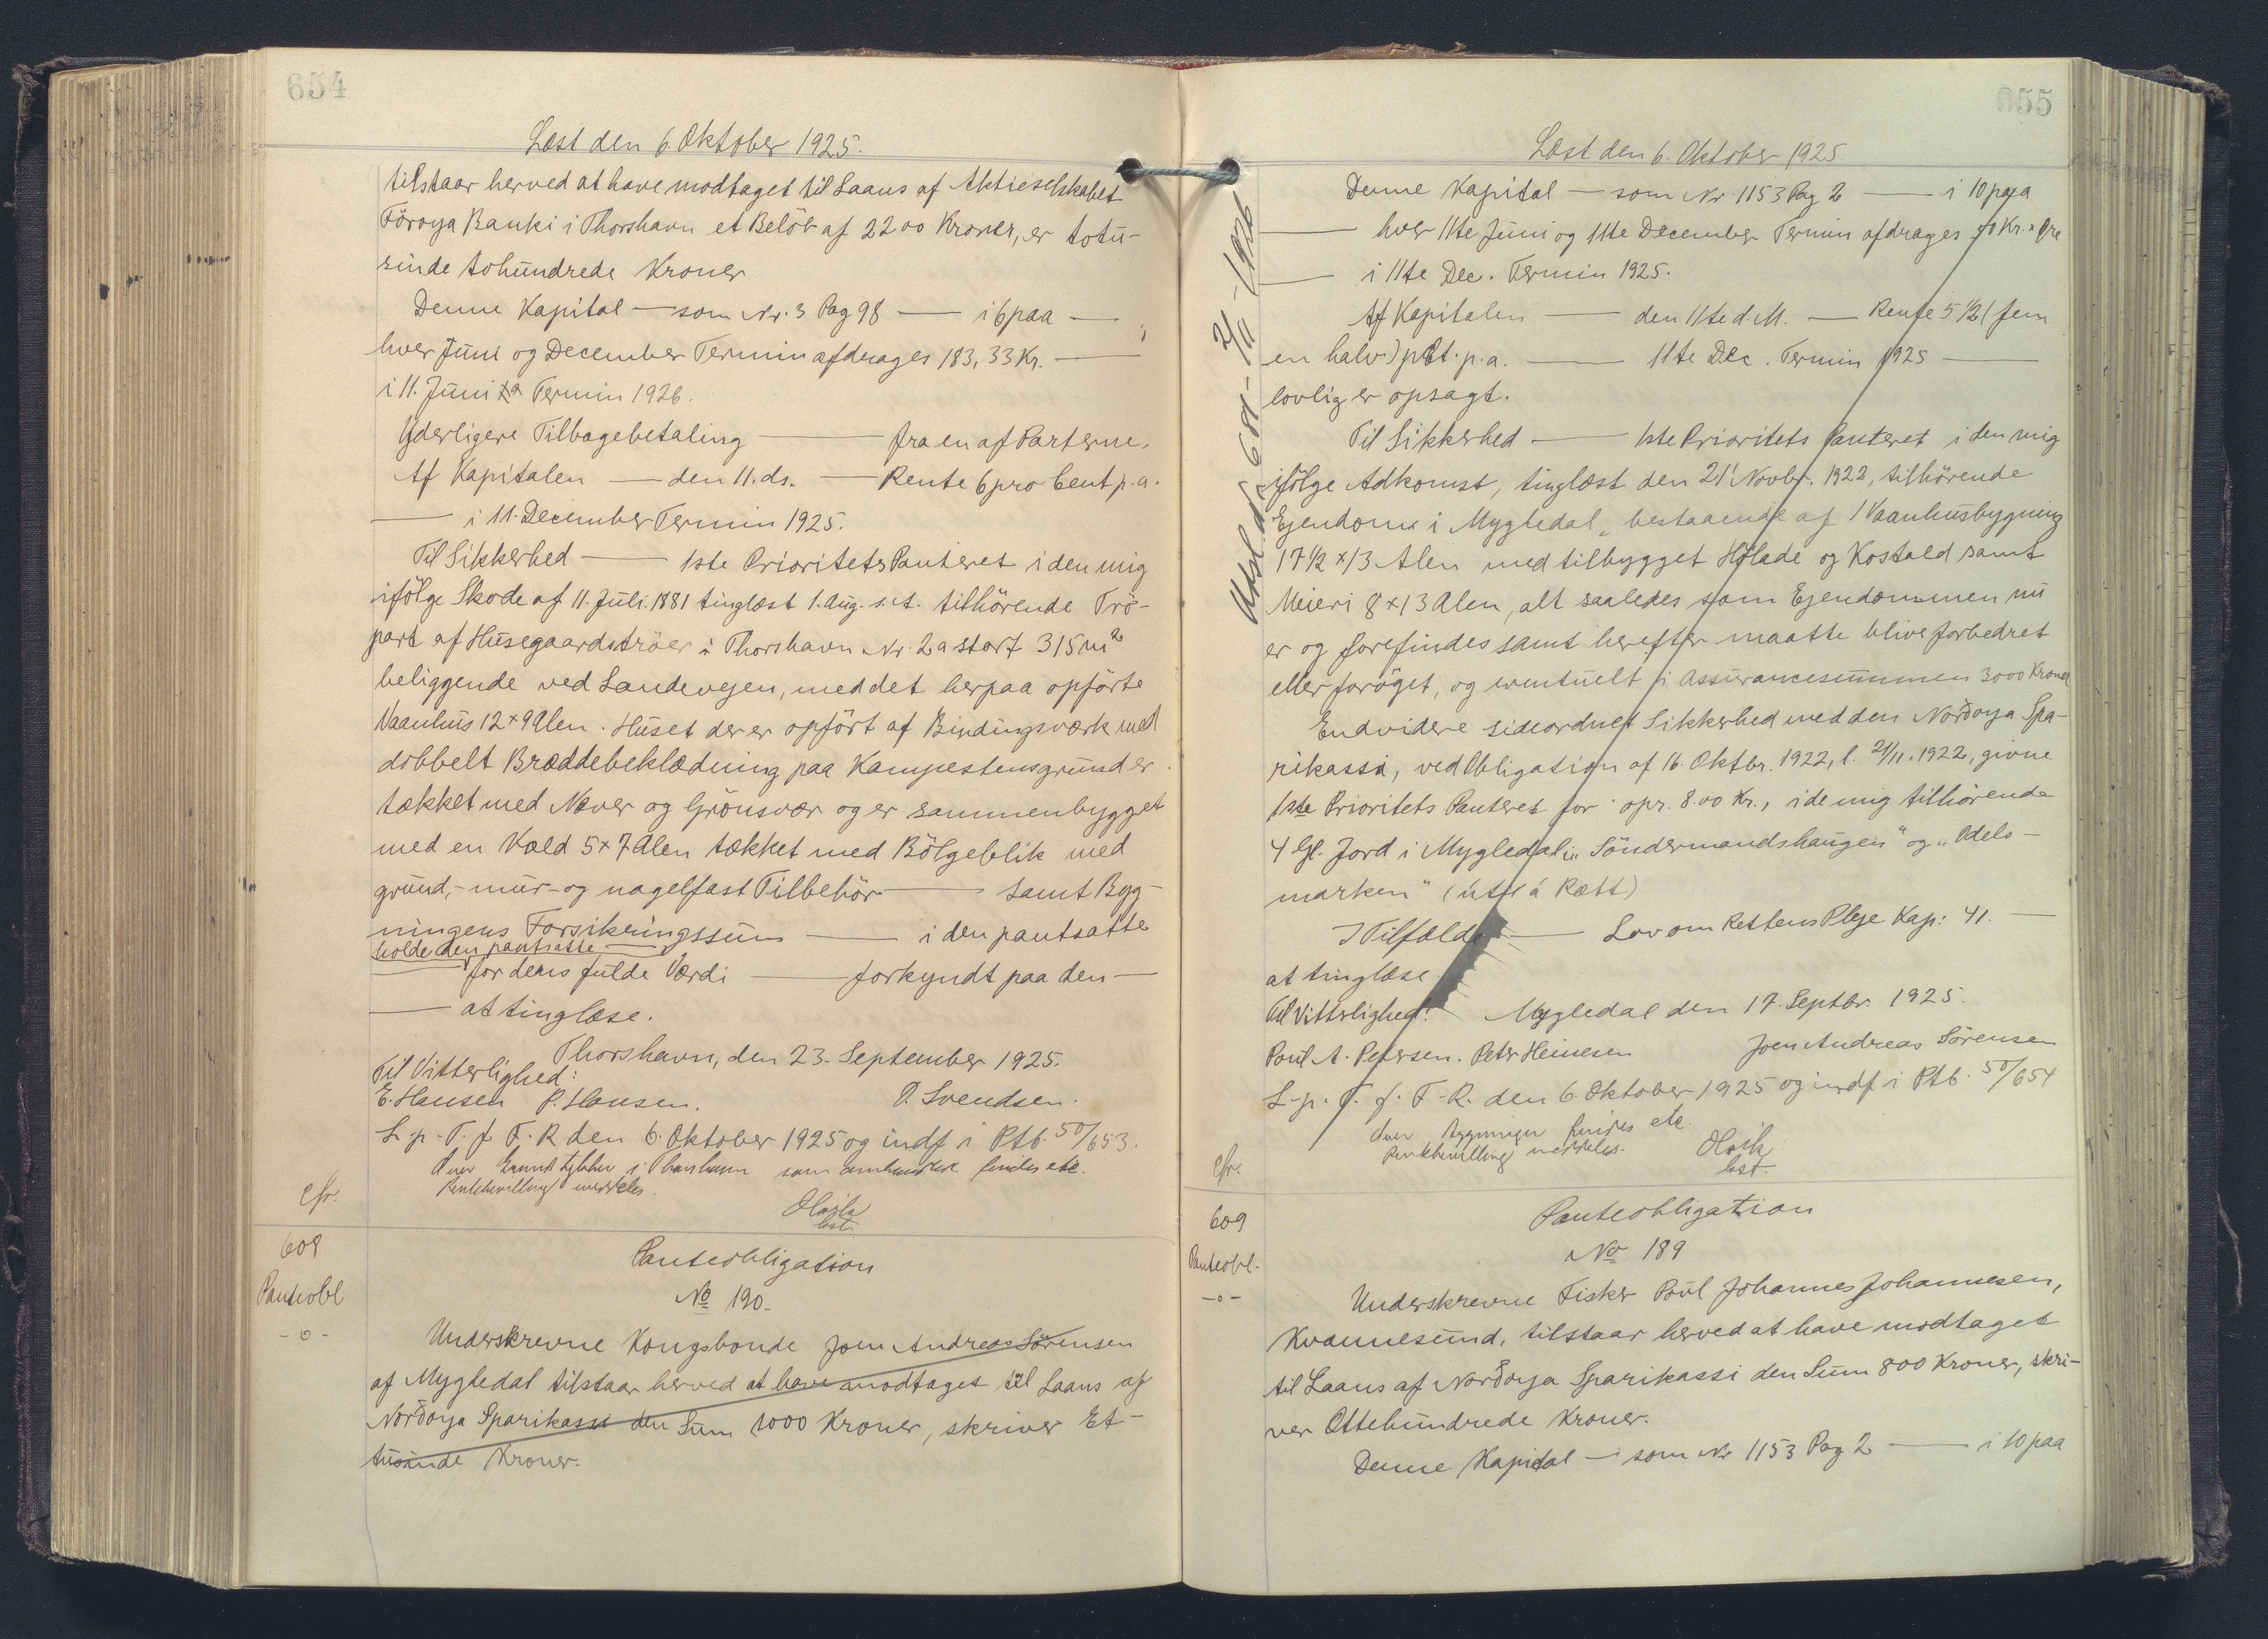 654
Læst den 6. Oktober 1925.
tilstaar herved at have modtaget til Laans af Aktieselskabet
Föroya Banki i Thorshavn et Belöb af 2200 Kroner, er totu-
sinde tohundrede Kroner
Denne Kapital — som Nr. 3 Pag 98 — i 6 paa —
hver Juni og December Termin afdrages 183,33 Kr. —
i 11. Juni Termin 1926.
Yderligere Tilbagebetaling — fra en af Parterne.
Af Kapitalen — den 11. ds. — Rente 6 pro Cent p.a.
— i 11. December Termin 1925.
Til Sikkerhed — 1ste Prioritets Panteret i den mig
ifölge Skøde af 11. Juli 1881 tinglæst 1. Aug. s.A. tilhörende Trö-
part af Husegaardströer i Thorshavn Nr. 2a stort 315 m²
beliggende ved Landevejen, med det herpaa opförte
Vaanhus 12 x 9 Alen. Huset der er opfört af Bindingsværk med
dobbelt Bræddebeklædning paa Kampestensgrund er
tækket med Næver og Grönsvær og er sammenbygget
med en Kæld 5 x 7 Alen tækket med Bölgeblik med
grund,- mur- og nagelfast Tilbehör — samt Byg-
ningens Forsikringssum — i den pantsatte
holde den pantsatte —
for dens fulde Værdi — forkyndt paa den —
— at tinglæse.
Thorshavn, den 23. September 1925.
Til Vitterlighed:
E. Hansen P. Hansen. O. Svendsen.
L. p. T. f. F. R den 6. Oktober 1925 og indf i Ptb. 50/653.
Over Grundstykker i Thorshavn som ombemeldte findes etc.
Rentebevilling meddeles.
Cfr.
cst.
608
Panteobl
-o-
Panteobligation
No 190.
Underskrevne Kongsbonde Joen Andreas Sörensen
af Mygledal tilstaar herved at have modtaget til Laans af
Norðoya Sparikassi den Sum 1000 Kroner, skriver Et-
tusinde Kroner.
655
Læst den 6. Oktober 1925
Denne Kapital — som Nr 1153 Pag 2 — i 10 paa
— hver 11te Juni og 11te December Termin afdrages 50 Kr. x Øre
— i 11te Dec. Termin 1925.
Af Kapitalen — den 11te d.M. — Rente 5 1/2 (fem
en halv) pCt. p.a. — 11te Dec. Termin 1925 —
lovlig er opsagt.
Til Sikkerhed — 1ste Prioritets Panteret i den mig
ifölge Adkomst, tinglæst den 21' Novbr. 1922, tilhörende
Ejendom i Mygledal, bestaaende af 1 Vaanhusbygning
17 1/2 x 13 Alen med tilbygget Hølade og Kostald samt
Meieri 8 x 13 Alen, alt saaledes som Ejendommen nu
er og forefindes samt herefter maatte blive forbedret
eller foröget, og eventuelt i Assurancesummen 3000 Kroner
Endvidere sideordnet Sikkerhed med den Norðoya Spa-
rikassi, ved Obligation af 16. Oktbr. 1922, l. 21/11. 1922, givne
1ste Prioritets Panteret for opr. 800 Kr., i de mig tilhörende
4 Gl. Jord i Mygledal i "Söndermandshaugen" og "Odels-
marken" (úti á Rætt)
I Tilfælde — Lov om Rettens Pleje Kap: 41. —
at tinglæse
Til Vitterlighed: Mygledal den 17. Septbr. 1925.
Poul A. Petersen. Peter Heinesen Joen Andreas Sörensen
L. p. T. f. F. R. den 6. Oktober 1925 og indf i Ptb. 50/654
Over Bygninger findes etc.
Rentebevilling meddeles.
Cfr.
cst.
609
Panteobl.
-o-
Panteobligation
No 189
Underskrevne Fisker Poul Johannes Johannesen,
Kvannesund, tilstaar herved at have modtaget
til Laans af Norðoya Sparikassi den Sum 800 Kroner, skri-
ver Ottehundrede Kroner.
Denne Kapital — som Nr 1153 Pag 2 — i 10 paa